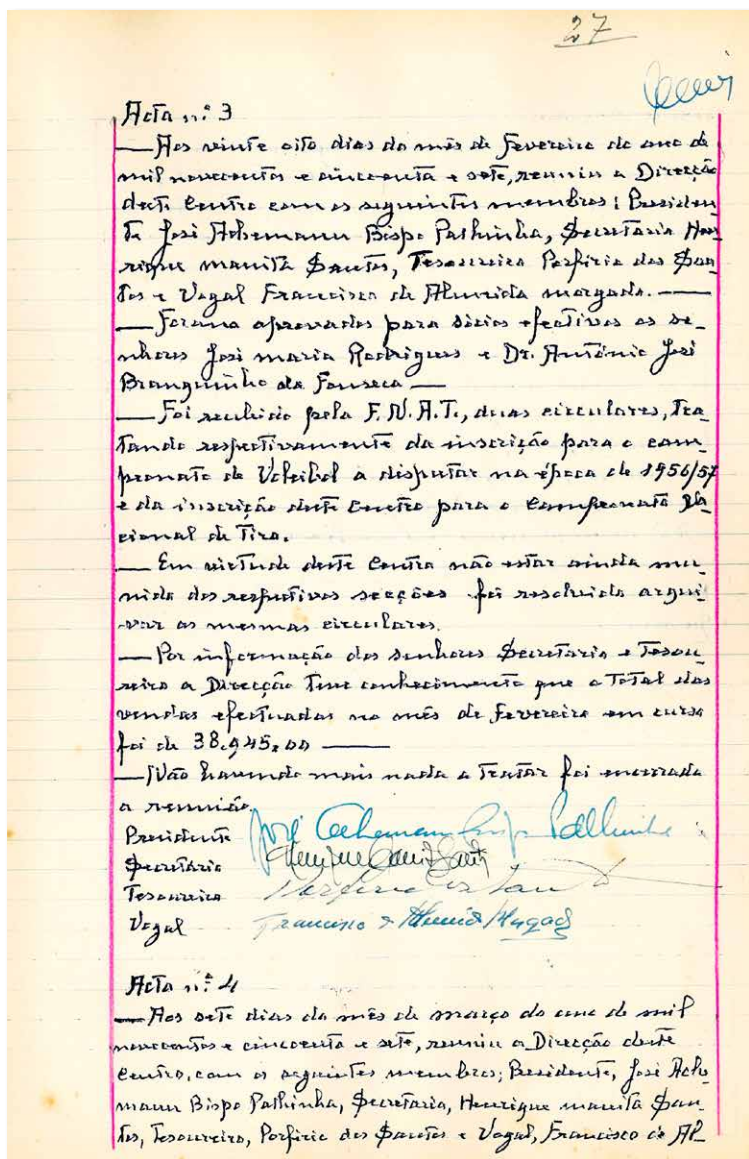 27
Acta n.º 3
— Aos vinte oito dias do mês de Fevereiro do ano de
mil novecentos e cincoenta e sete, reuniu a Direcção
deste Centro com os seguintes membros: Presiden_
te José Achemann Bispo Palhinha, Secretário Hen_
rique Manita Santos, Tesoureiro Porfirio dos San_
tos e Vogal Francisco de Almeida Morgado. —
— Foram aprovados para sócios efectivos os se_
nhores José Maria Rodrigues e Dr. António José
Branquinho da Fonseca —
— Foi recebido pela F.N.A.T., duas circulares, tra_
tando respectivamente da inscrição para o cam_
pronato de Voleibol a disputar na época de 1956/57
e da inscrição deste Centro para o Campeonato Na_
cional de Tiro.
— Em virtude deste Centro não estar ainda mu_
nido das respectivas secções foi resolvido arqui_
var as mesmas circulares.
— Por informação dos senhores Secretário e Tesou_
reiro a Direcção teve conhecimento que o total das
vendas efectuadas no mês de Fevereiro em curso
foi de 38.945,00 —
— Não havendo mais nada a tratar foi encerrada
a reunião
Presidente José Achemann Bispo Palhinha
Secretário
Tesoureiro Porfirio dos Santos
Vogal Francisco de Almeida Morgado
Acta n.º 4
— Aos sete dias do mês de Março do ano de mil
novecentos e cincoenta e sete, reuniu a Direcção deste
Centro, com os seguintes membros; Presidente, José Ache_
mann Bispo Palhinha, Secretário, Henrique Manita San_
tos, Tesoureiro, Porfirio dos Santos e Vogal, Francisco de Al_